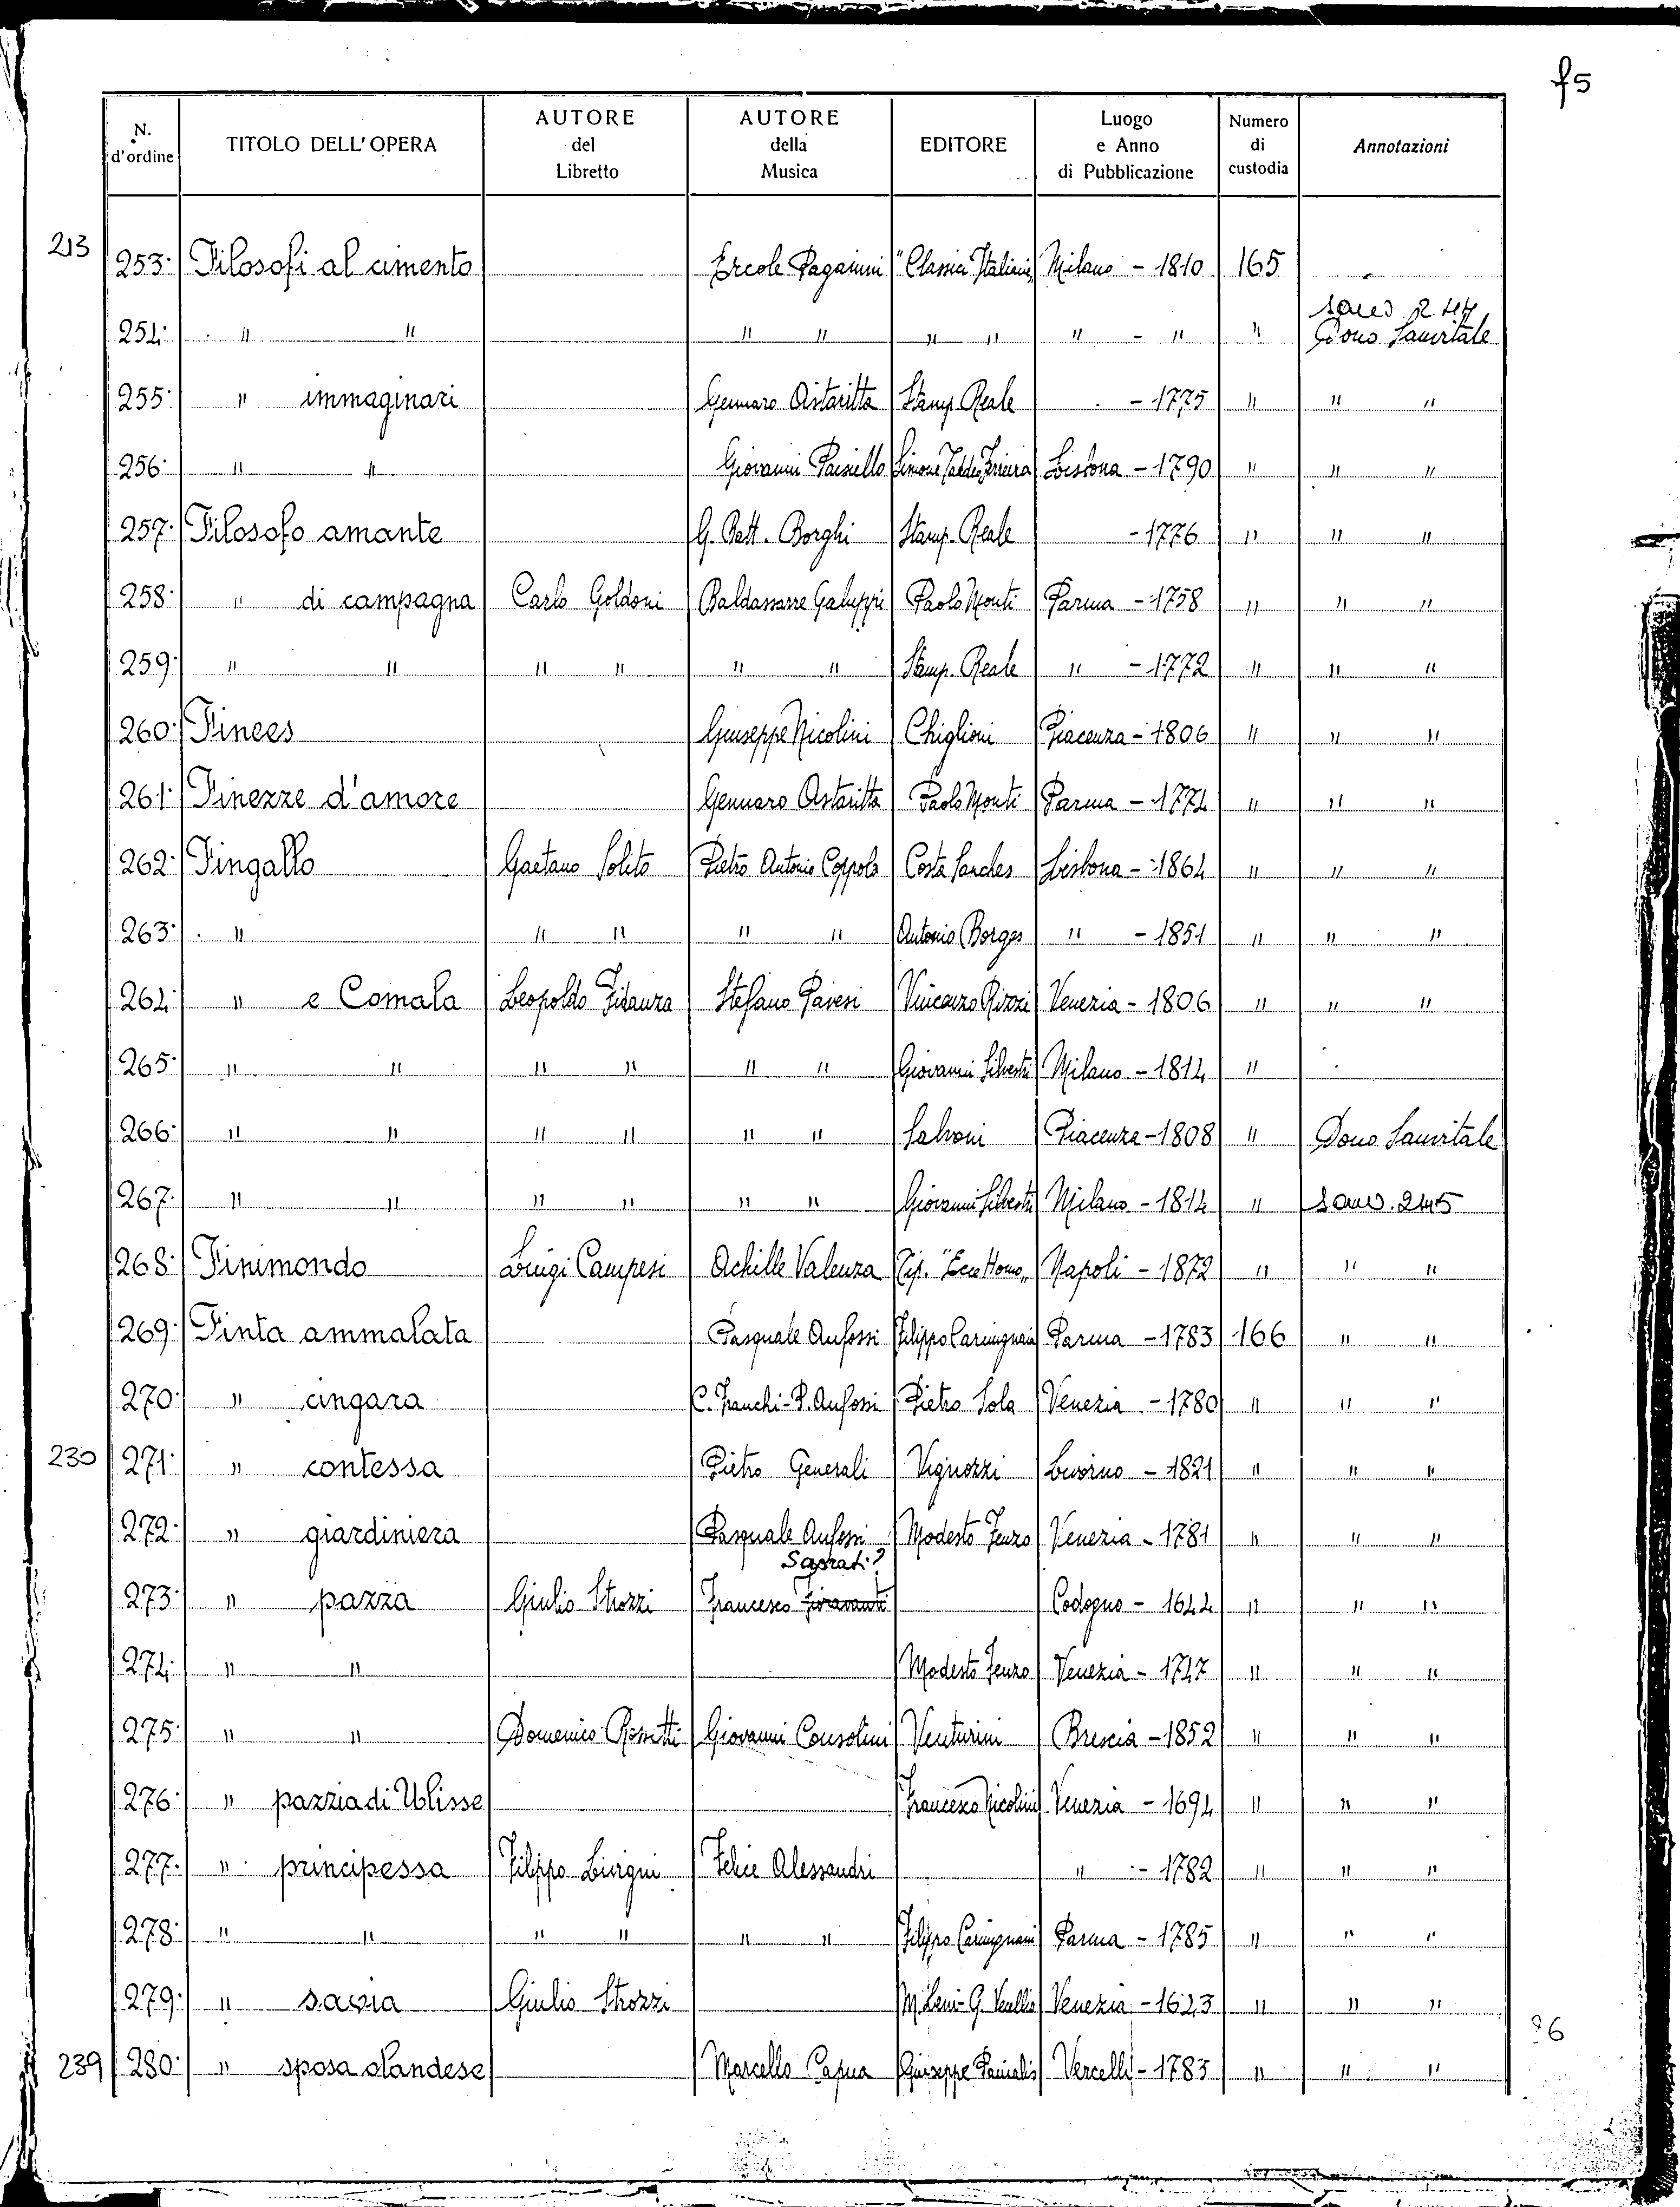 f5
N. d'ordine TITOLO DELL'OPERA AUTORE del Libretto AUTORE della Musica EDITORE Luogo e Anno di Pubblicazione Numero di custodia Annotazioni
213 253. Filosofi al cimento Ercole Paganini "Classici Italiani" Milano - 1810 165
Sanv. 244
254. " " " " " " " - " " Dono Sanvitale
255. " immaginari Gennaro Astaritta Stamp. Reale - 1775 " " "
256. " " Giovanni Paisiello Simone Taddeo Ferreira Lisbona - 1790 " " "
257. Filosofo amante G. Batt. Borghi Stamp. Reale - 1776 " " "
258. " di campagna Carlo Goldoni Baldassarre Galuppi Paolo Monti Parma - 1758 " " "
259. " " " " " " Stamp. Reale " - 1772 " " "
260. Finees Giuseppe Nicolini Ghiglioni Piacenza - 1806 " " "
261. Finezze d'amore Gennaro Astaritta Paolo Monti Parma - 1774 " " "
262. Fingallo Gaetano Solito Pietro Antonio Coppola Costa Sanches Lisbona - 1864 " " "
263. " " " " " Antonio Borges " - 1851 " " "
264. " e Comala Leopoldo Fidanza Stefano Pavesi Vincenzo Rizzi Venezia - 1806 " " "
265. " " " " " " Giovanni Silvestri Milano - 1814 "
266. " " " " " " Salvoni Piacenza - 1808 " Dono Sanvitale
267. " " " " " " Giovanni Silvestri Milano - 1814 " Sanv. 245
268. Finimondo Luigi Campesi Achille Valenza Tip. "Ecce Homo" Napoli - 1872 " " "
269. Finta ammalata Pasquale Anfossi Filippo Carmignani Parma - 1783 166 " "
270. " cingara C. Franchi - P. Anfossi Pietro Sola Venezia - 1780 " " "
230 271. " contessa Pietro Generali Vignozzi Livorno - 1821 " " "
272. " giardiniera Pasquale Anfossi Modesto Fenzo Venezia - 1781 " " "
Sacrati?
273. " pazza Giulio Strozzi Francesco Fioravanti Codogno - 1644 " " "
274. " " Modesto Fenzo Venezia - 1747 " " "
275. " " Domenico Rossetti Giovanni Consolini Venturini Brescia - 1852 " " "
276. " pazzia di Ulisse Francesco Nicolini Venezia - 1694 " " "
277. " principessa Filippo Livigni Felice Alessandri " - 1782 " " "
278. " " " " " " Filippo Carmignani Parma - 1785 " " "
279. " savia Giulio Strozzi M. Leni - G. Venezia - 1643 " " "
96
239 280. " sposa olandese Marcello Capua Giuseppe Panialis Vercelli - 1783 " " "